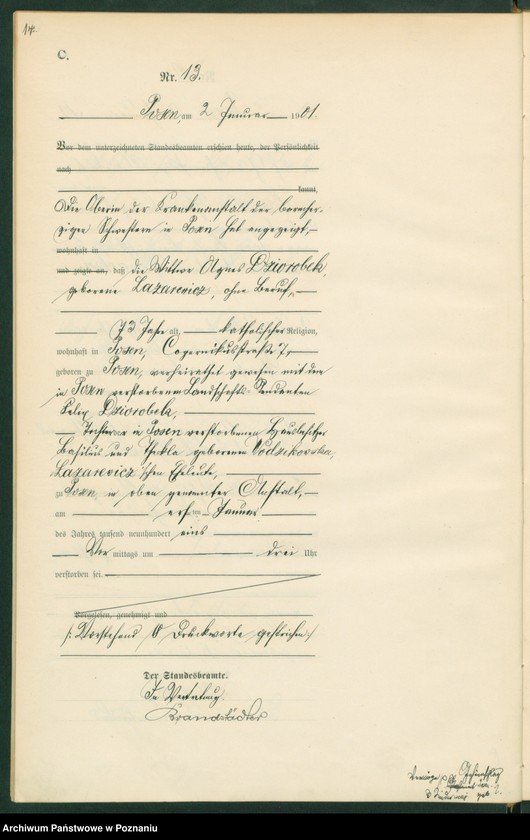 C.
Nr. 13.
Posen, am 2 Januar 1901.
Vor dem unterzeichneten Standesbeamten erschien heute, der Persönlichkeit
nach
kannt,
Die Oberin der Krankenanstalt der barmher-
zigen Schwestern in Posen hat angezeigt,
wohnhaft in
und zeigte an, daß die Wittwe Agnes Dziorobek,
geborene Lazarewicz, ohne Beruf,
73 Jahr alt, katholischer Religion,
wohnhaft in Posen, Copernikusstraße 7,
geboren zu Posen, verheirathet gewesen mit dem
in Posen verstorbenen Landschafts-Rendanten
Felix Dziorobek,
Tochter der in Posen verstorbenen Hausbesitzer
Basilius und Thekla geborenen Wodzikowska,
Lazarewicz'schen Eheleute,
zu Posen, in oben genannter Anstalt,
am ersten Januar
des Jahres tausend neunhundert eins
Vor mittags um drei Uhr
verstorben sei.
Vorgelesen, genehmigt und
/: Vorstehend Druckworte gestrichen :/
Der Standesbeamte.
In Vertretung.
Brandstädter
Archiwum Państwowe w Poznaniu